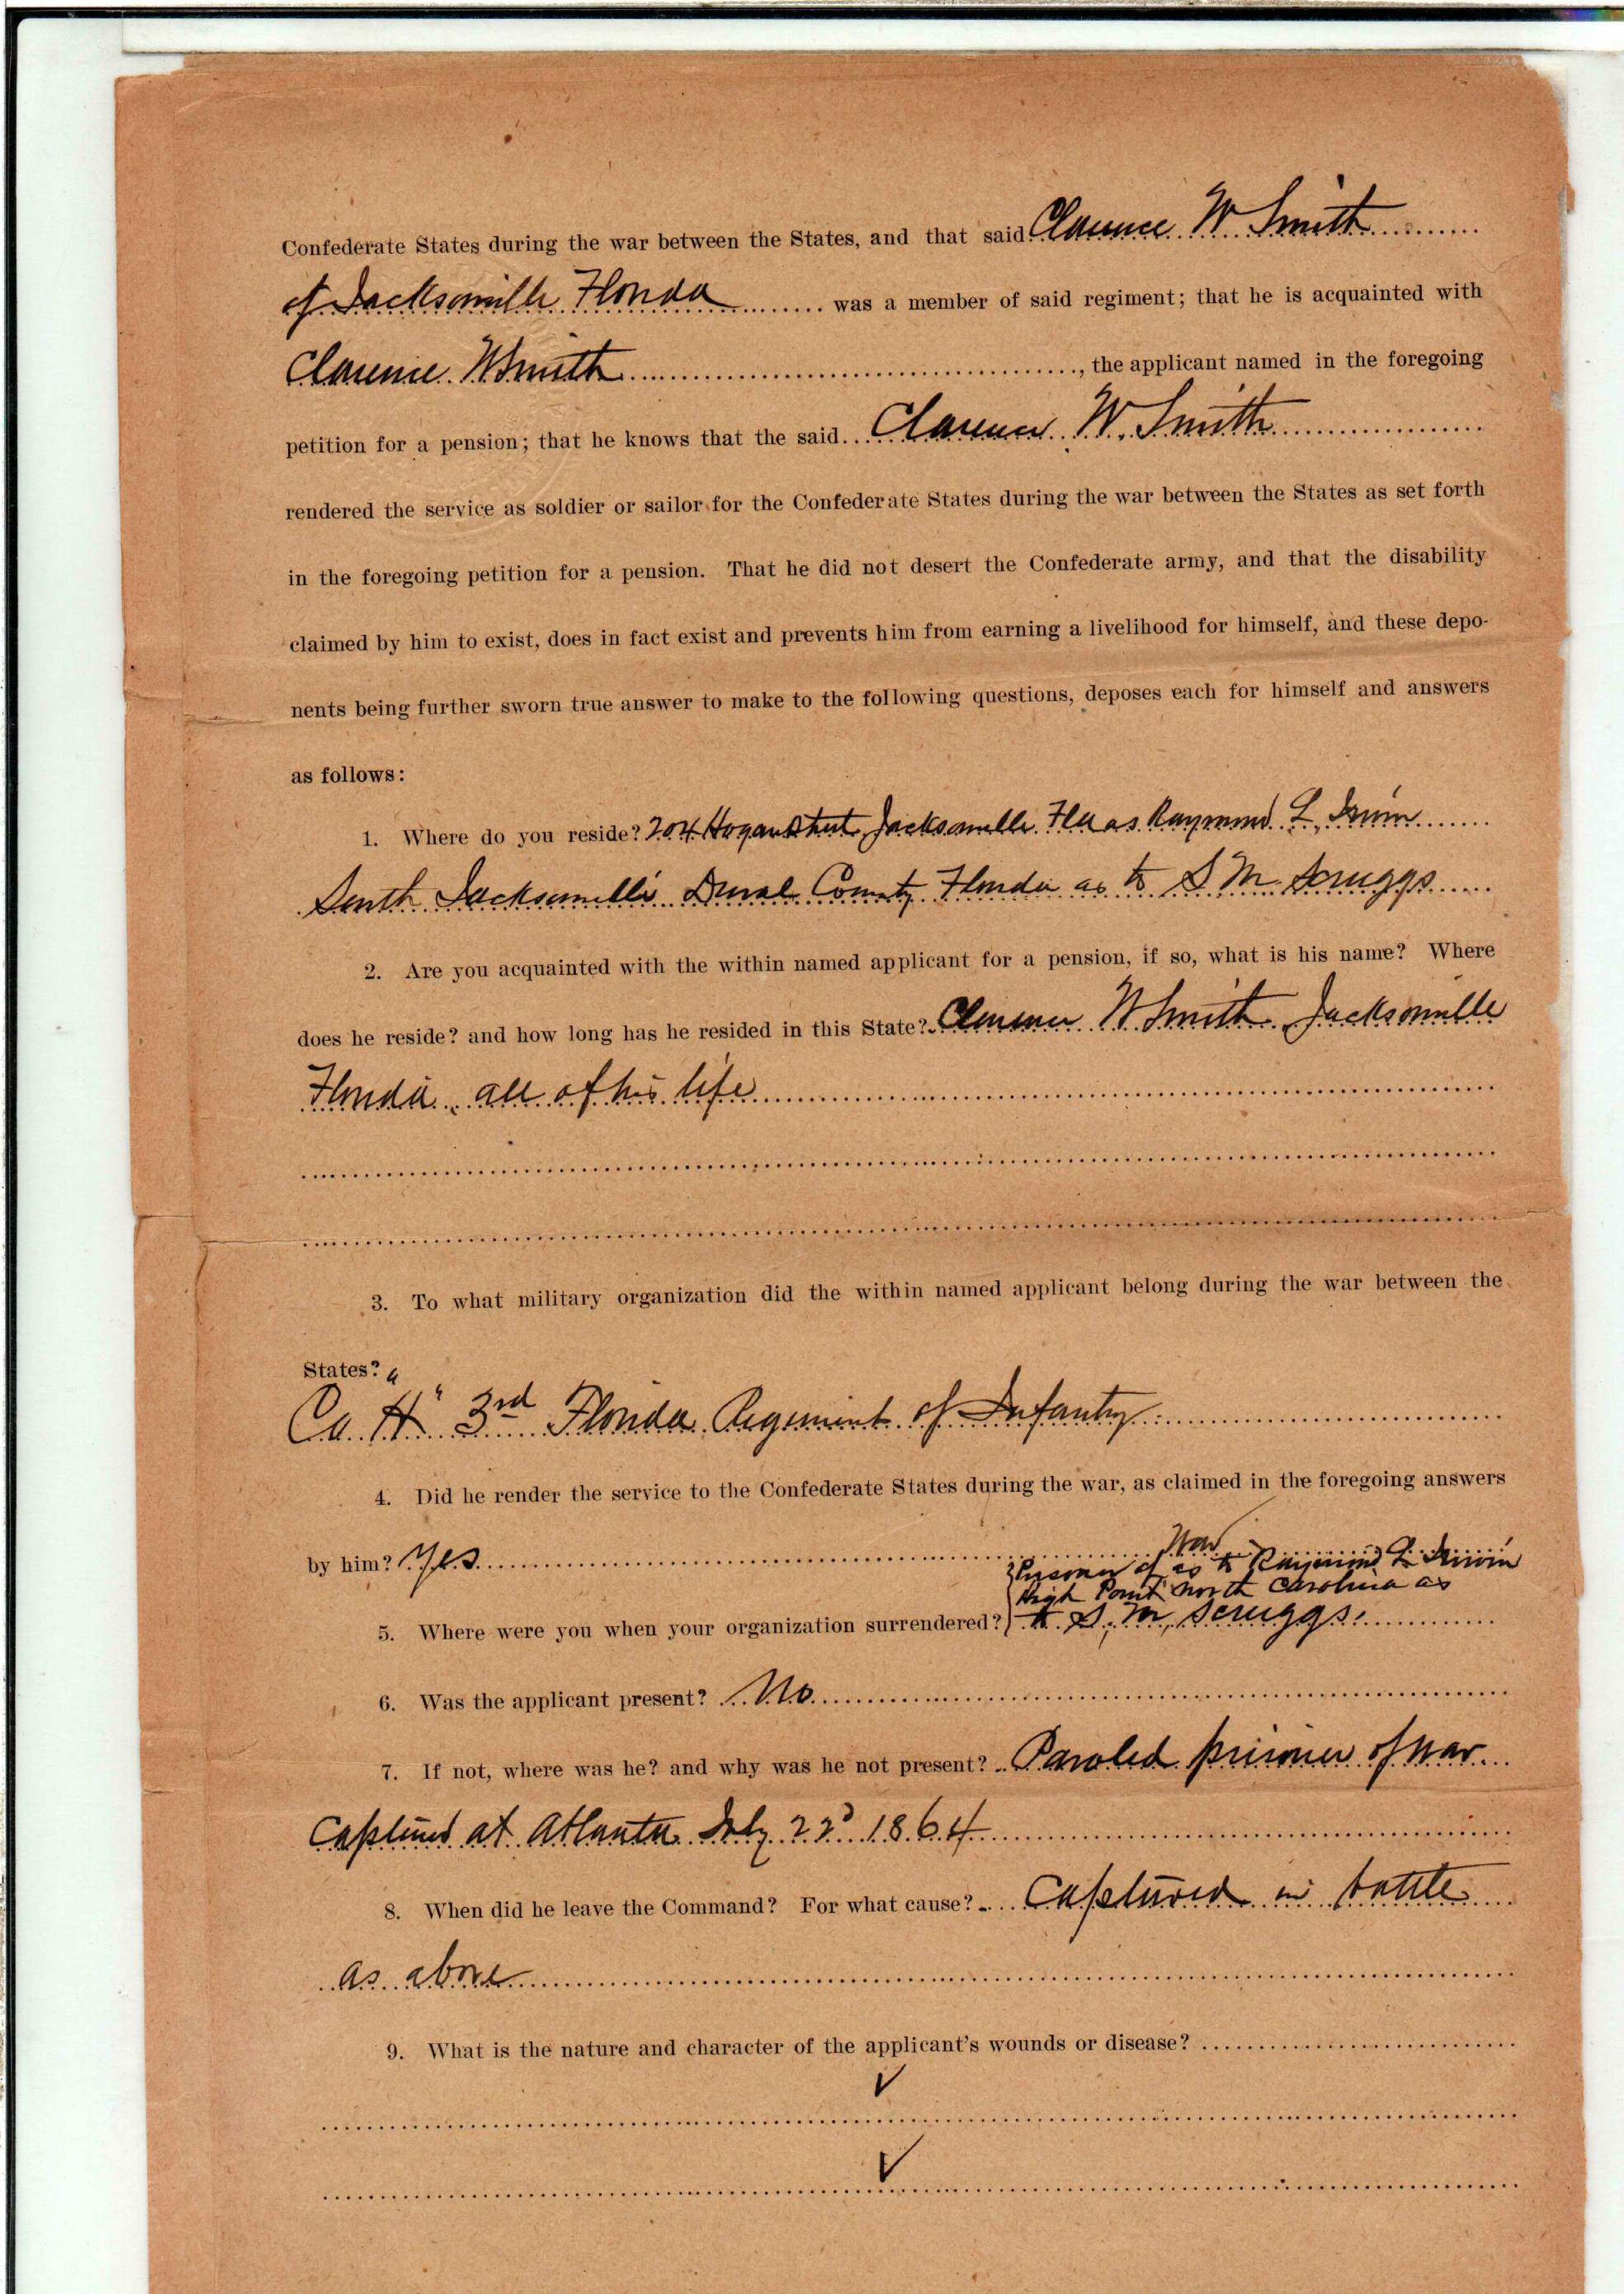 Confederate States during the war between the States, and that said Clarence W Smith
of Jacksonville Florida was a member of said regiment; that he is acquainted with
Clarence W Smith, the applicant named in the foregoing
petition for a pension; that he knows that the said Clarence W. Smith
rendered the service as soldier or sailor for the Confederate States during the war between the States as set forth
in the foregoing petition for a pension. That he did not desert the Confederate army, and that the disability
claimed by him to exist, does in fact exist and prevents him from earning a livelihood for himself, and these depo-
nents being further sworn true answer to make to the following questions, deposes each for himself and answers
as follows:
1. Where do you reside? 204 Hogan Street, Jacksonville Fla as Raymond L. Irwin
South Jacksonville Duval County Florida as to S M Scruggs
2. Are you acquainted with the within named applicant for a pension, if so, what is his name? Where
does he reside? and how long has he resided in this State? Clarence W Smith Jacksonville
Florida, all of his life
3. To what military organization did the within named applicant belong during the war between the
States?
Co "H" 3rd Florida Regiment of Infantry
4. Did he render the service to the Confederate States during the war, as claimed in the foregoing answers
by him? Yes
War
Prisoner of as to Raymond L Irwin
High Point North Carolina as
5. Where were you when your organization surrendered? to S. M. Scruggs.
6. Was the applicant present? No
7. If not, where was he? and why was he not present? Paroled prisoner of war
Captured at Atlanta July 22d 1864
8. When did he leave the Command? For what cause? Captured in battle
as above
9. What is the nature and character of the applicant's wounds or disease?